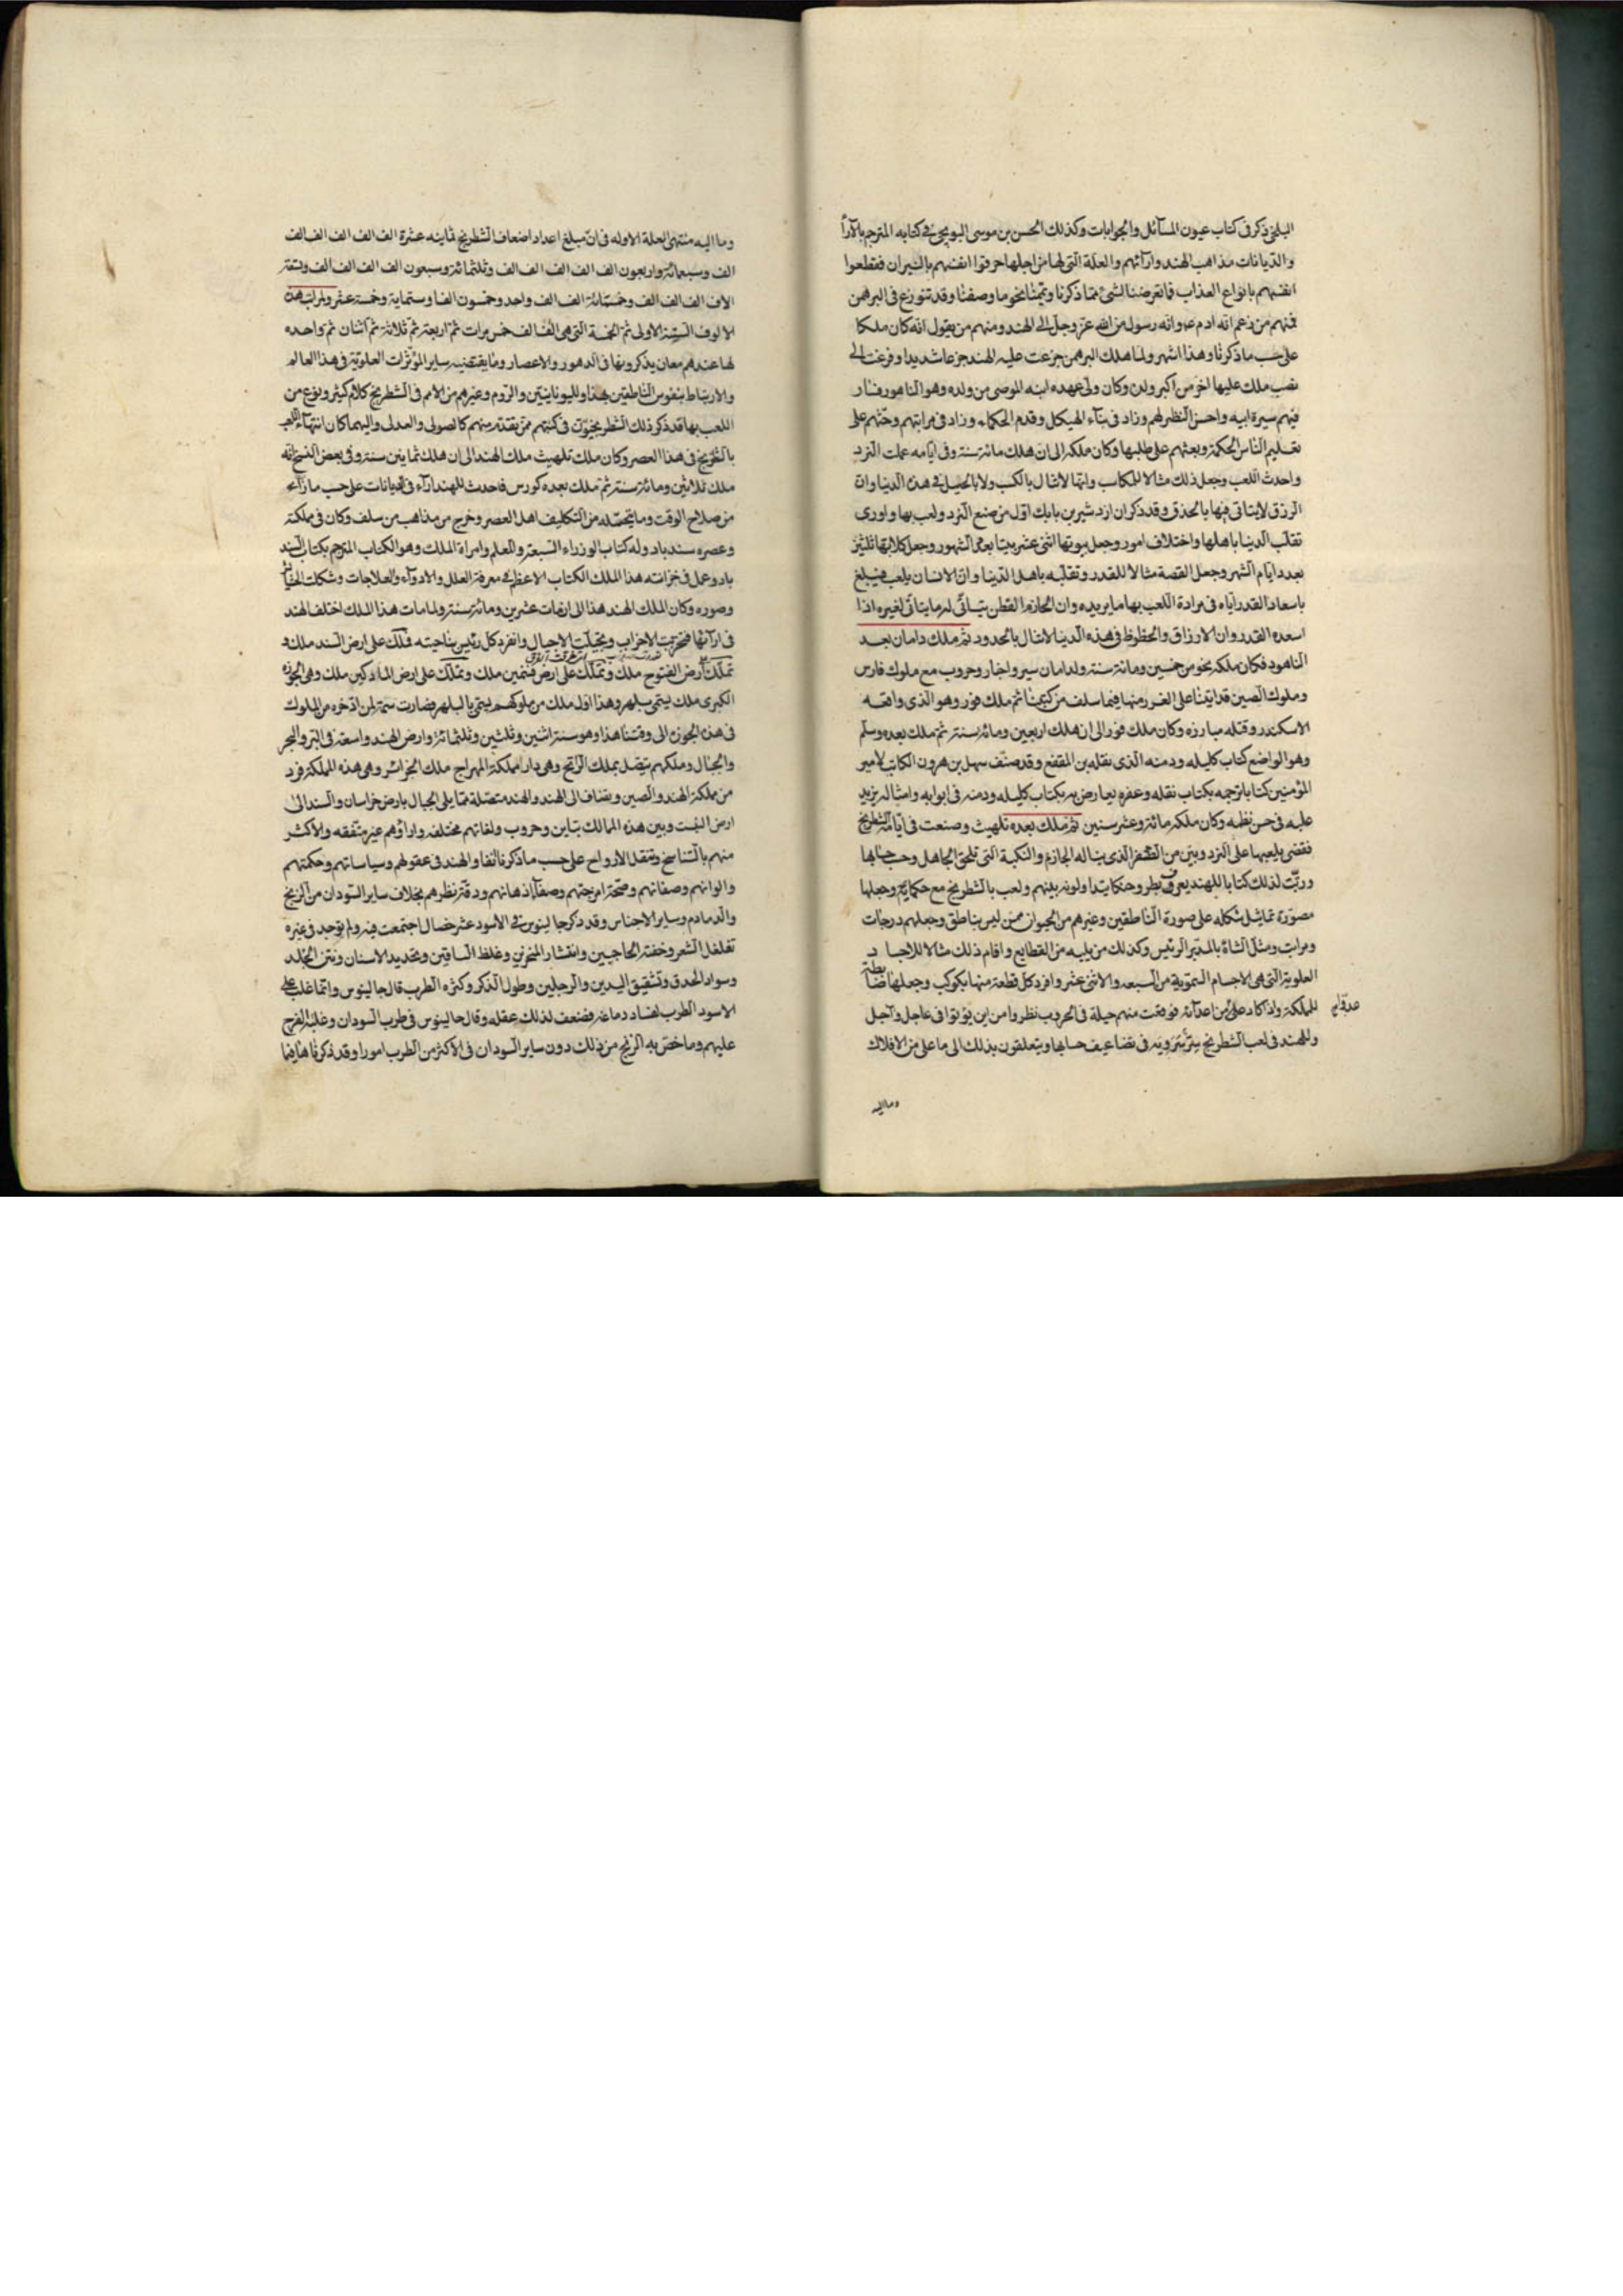 البلخى ذكر فى كتاب عيون المسآئل والجوابات وكذلك الحسن بن موسى النوبختى فى كتابه المترجم بالآرآ
والديانات مذاهب الهند وارآئهم والعلة التى لها من اجلها حرقوا انفسهم بالنيران فقطعوا
انفسهم بانواع العذاب فلم نعرض لشئ مما ذكرنا ويممنا نحو ما وصفنا وقد تنوزع فى البرهمن
فمنهم من زعم انه ادم ع وانه رسول من الله عز وجل الى الهند ومنهم من يقول انه كان ملكا
على حسب ما ذكرنا وهذا اشهر ولما هلك البرهمن جزعت عليه الهند جزعا شديدا وفزعت الى
نصب ملك عليها اخر من اكبر ولده وكان ولى عهده ابنه الموصى من ولده وهو الناهود فسار
فيهم سيرة ابيه واحسن النظر لهم وزاد فى بنآء الهيكل وقدم الحكماء وزاد فى مراتبهم وحثهم على
تعليم الناس الحكمة وبعثهم على طلبها وكان ملكه الى ان هلك مائة سنة وفى ايامه عملت النرد
واحدث اللعب وجعل ذلك مثالا للمكاسب وانها لا تنال بالكسب ولا بالحيل فى هذه الدنيا وان
الرزق لا يتاتى فيها بالحذق وقد ذكر ان ازدشير بن بابك اول من صنع النرد ولعب بها واورى
تقلب الدنيا باهلها واختلاف امور وجعل بيوتها اثنى عشر بيتا بعدد الشهور وجعل كلابها ثلثين
بعدد ايام الشهر وجعل الفصة مثالا للقدر وتقلبه باهل الدنيا وان الانسان يلعب فيبلغ
باسعاد القدر اياه فى مرادة اللعب بها ما يريده وان الحازم الفطن يتاتى له ما يتاتى لغيره اذا
اسعده القدر وان الارزاق والحظوظ فى هذه الدنيا لا تنال بالحدود ثم ملك دامان بعد
الناهود فكان ملكه نحو من خمسين ومائة سنة ولدامان سير واخبار وحروب مع ملوك فارس
وملوك الصين قد اتينا على الغرر منها فيما سلف من كتبنا ثم ملك فور وهو الذى واقعه
الاسكندر وقتله مبارزه وكان ملك فور الى ان هلك اربعين ومائة سنة ثم ملك بعده وسلم
وهو الواضع كتاب كليله ودمنه الذى نقله بن المقفع وقد صنف سهل بن هرون الكاتب لامير
المؤمنين كتابا ترجمه بكتاب نقله وعفره يعارض به بكتاب كليله ودمنه فى ابوابه وامثاله يزيد
عليه فى حسن نظمه وكان ملكه مائة وعشر سنين ثم ملك بعده تلهيث وصنعت فى ايامه الشطرنج
فقضى بلعبها على النرد وبين من الظفر الذى يناله الحازم والنكبة التى تلحق الجاهل وحسب حسابها
ورتب لذلك كتابا للهند يعرف بطر وحنكا يتداولونه بينهم ولعب بالشطرنج مع حكمائه وجعلها
مصورة تماثيل شكله على صورة الناطقين وغيرهم من الحيوان ممن ليس بناطق وجعلهم درجات
ومراتب ومثل الشاة بالمدبر الرئيس وكذلك من يليه من القطايع واقام ذلك مثالا للاجسا د
العلوية التى هى الاجسام السموية من السبعه والاثنى عشر وافرد كل قطعة منها بكوكب وجعلها ضابطة
للمملكة واذا كاد على من اعدآئه فوقعت منهم حيلة فى الحروب نظروا من اين يؤتوا فى عاجل وآجل
وللهند فى لعب الشطرنج سر يسرونه فى تضاعيف حسابها ويتعلقون بذلك الى ما على من الافلاك
وما اليه
وما اليه منتهى العلة الاوله فى ان مبلغ اعداد اضعاف الشطرنج ثمانيه عشرة الف الف الف الف الف
الف وسبعمائة واربعون الف الف الف الف الف وثلثمائة وسبعون الف الف الف الف وستة
الاف الف الف الف وخمسمائة الف الف واحد وخمسون الفا وستماية وخمسة عشر ولمراتب هذه
الالوف الستة الاولى ثم الخمسة التى هى الف الف خمس مرات ثم اربعة ثم ثلاثة ثم اثنان ثم واحده
لها عندهم معان يذكرونها فى الدهور والاعصار وما يقتضيه ساير المؤثرات العلوية فى هذا العالم
والارتباط بنفوس الناطقين بهذا ولليونانيين والروم وغيرهم من الامم فى الشطرنج كلام كثير ونوع من
اللعب بها قد ذكر ذلك الشطرنجيون فى كتبهم ممن تقدم منهم كالصولى والعدلى واليهما كان انتهآء اللعب
بالشطرنج فى هذا العصر وكان ملك تلهيث ملك الهند الى ان هلك ثمانين سنة وفى بعض النسخ انه
ملك ثلاثين ومائة سنة ثم ملك بعده كورس فاحدث للهند ارآء فى الديانات على حسب ما رآء
من صلاح الوقت وما يحتمله من التكليف اهل العصر وخرج من مذاهب من سلف وكان فى مملكته
وعصره سندباد وله كتاب الوزراء السبعة والمعلم وامراة الملك وهو الكتاب المترجم بكتاب السند
باد وعمل فى خزانته هذا الملك الكتاب الاعظم فى معرفة العلل والادوآء والعلاجات وشكلت الحشايش
وصوره وكان الملك الهند هذا الى ان مات عشرين ومائة سنة ولما مات هذا الملك اختلف الهند
فى ارآئها فتحزبت الاحزاب وتجيلت الاجيال وانفرد كل رئيس بناحيته فملك على ارض السند ملك و
تملك ارض القنوج ملك وتملك على ارض قشمين ملك وتملك على ارض المانكير ملك وهى الحوزة
الكبرى ملك يسمى بلهر وهذا اول ملك من ملوكهم يسمى بالبلهر فصارت سمة لمن اذخره من الملوك
فى هذه الحوزه الى وقتنا هذا وهو سنة اثنين وثلثين وثلثمائة وارض الهند واسعة فى البر والبحر
والجبال وملكهم يتصل بملك الزابج وهى دار مملكة المهراج ملك الجزائر وهى هذه المملكة فرد
من مملكة الهند والصين ويضاف الى الهند والهند متصلة مما يلى الجبال بارض خراسان والسند الى
ارض التبت وبين هذه الممالك تباين وحروب ولغاتهم مختلفه واراؤهم غير متفقه والاكثر
منهم بالتناسخ وتنقل الارواح على حسب ما ذكرنا انفا والهند فى عقولهم وسياساتهم وحكمتهم
والوانهم وصفاتهم وصحة امزجتهم وصفآ اذهانهم ودقة نظرهم بخلاف ساير السودان من الزنج
والدمادم وساير الاجناس وقد ذكر جالينوس فى الاسود عشر خصال اجتمعت فيه ولم توجد فى غيره
تفلفل الشعر وخفة الحاجبين وانتشار المنخرين وغلظ الساقين وتحديد الاسنان ونتن الجلد
وسواد الحدق وتشقيق اليدين والرجلين وطول الذكر وكثره الطرب قال جالينوس وانما غلب على
الاسود الطرب لفساد دماغه فضعف لذلك عقله وقال جالينوس فى طرب السودان وغلبة الفرح
عليهم وما خص به الزنج من ذلك دون ساير السودان فى الاكثر من الطرب امورا وقد ذكرناها فيما